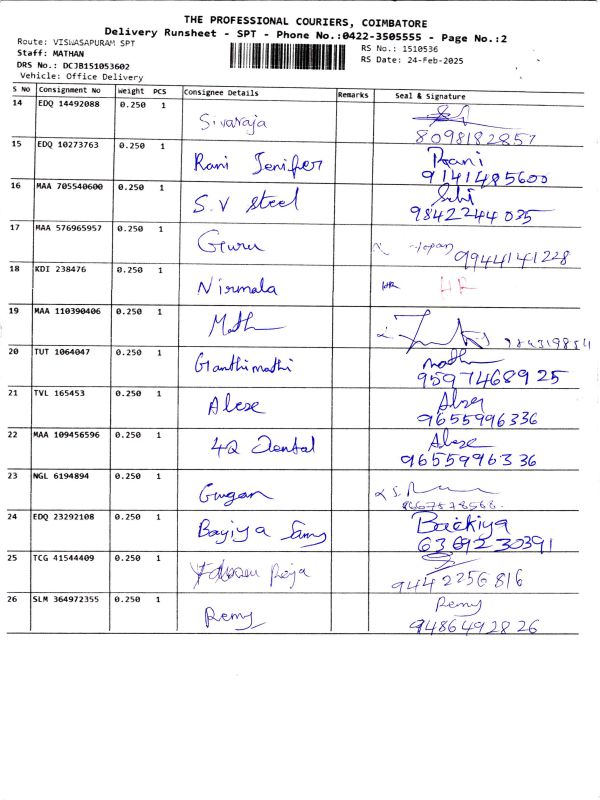 THE PROFESSIONAL COURIERS, COIMBATORE
Delivery Runsheet - SPT - Phone No.:0422-3505555 - Page No.:2
Route: VISWASAPURAM SPT
Staff: MATHAN
DRS No.: DCJB151053602
Vehicle: Office Delivery
RS No.: 1510536
RS Date: 24-Feb-2025
S No Consignment No Weight PCS Consignee Details Remarks Seal & Signature
14 EDQ 14492088 0.250 1 Sivaraja
8098182857
15 EDQ 10273763 0.250 1 Rani Jenifer Rani
9141485600
16 MAA 705540600 0.250 1 S.V Steel
9842244035
17 MAA 576965957 0.250 1 Guru 9944141228
18 KDI 238476 0.250 1 Nirmala HR HR
19 MAA 110390406 0.250 1
20 TUT 1064047 0.250 1 Ganthimathi
9597468925
21 TVL 165453 0.250 1
9655996336
22 MAA 109456596 0.250 1 42 Dental
9655996336
23 NGL 6194894 0.250 1 Gugan
24 EDQ 23292108 0.250 1 Backiya
6369230391
25 TCG 41544409 0.250 1 Roja
9442256816
26 SLM 364972355 0.250 1 Remy Remy
9486492826